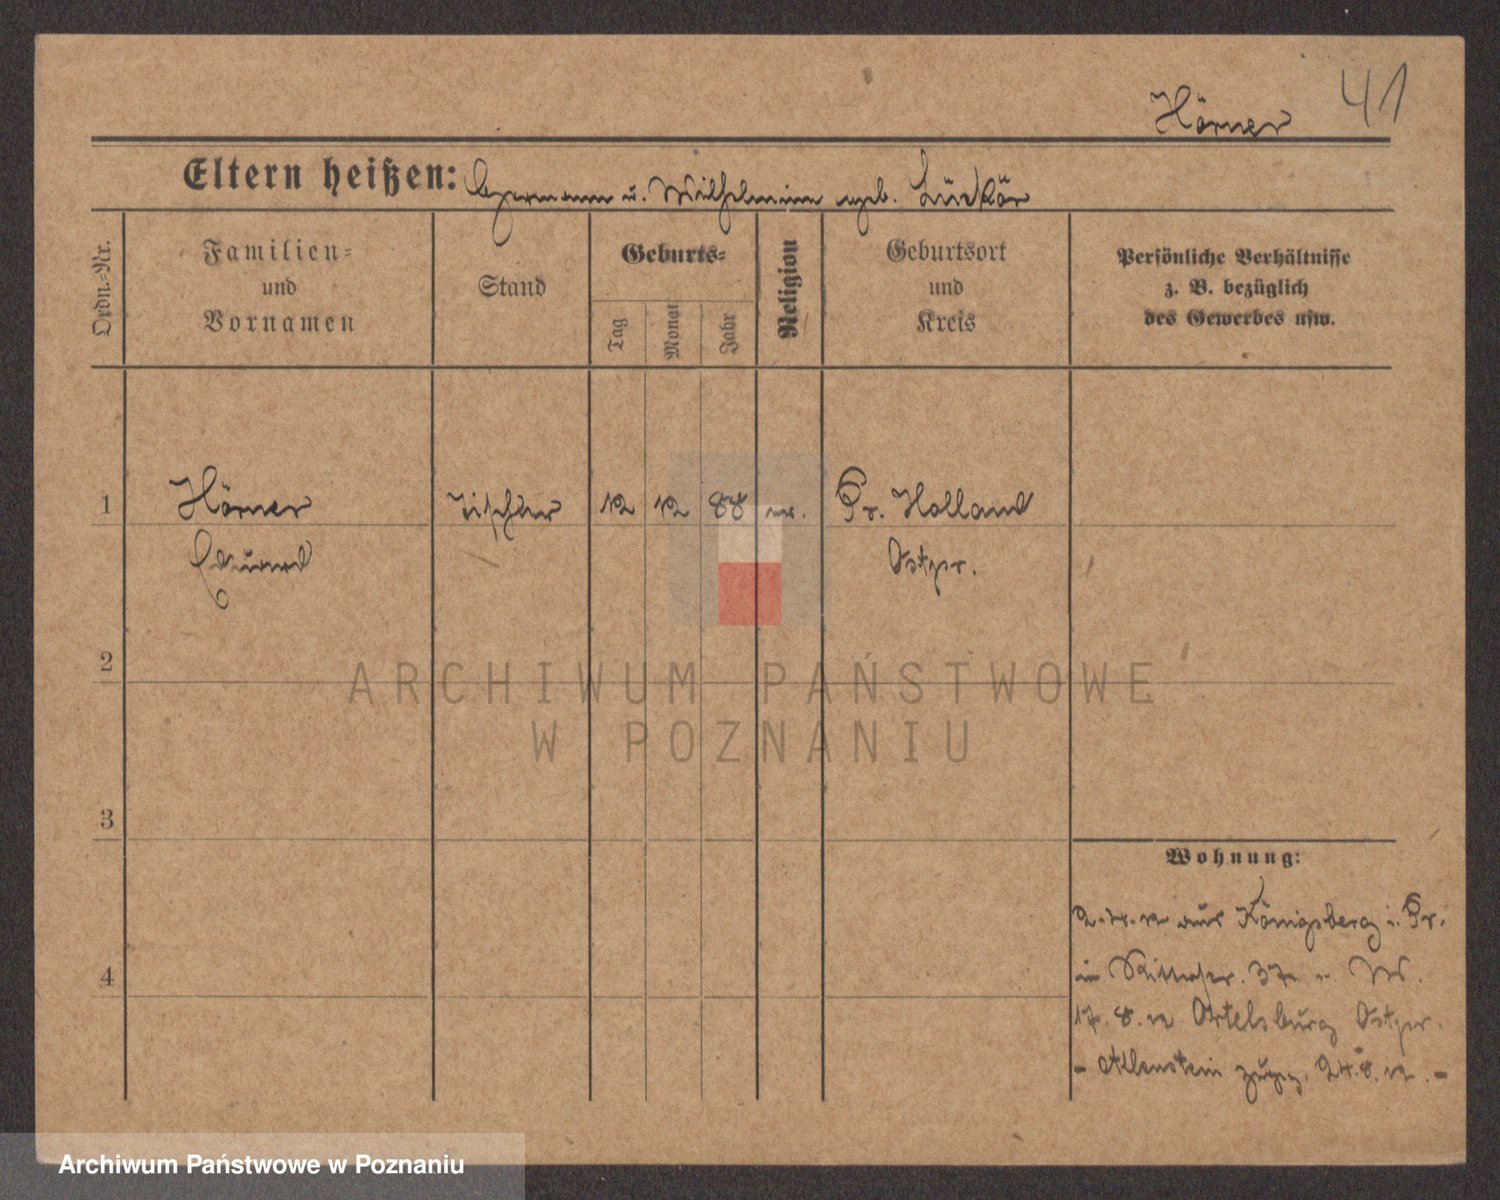 41
Hörner
Eltern heißen: Hermann u. Wilhelmine geb.
Ordn.-Nr.
Familien-
und
Vornamen
Stand
Geburts-
Tag
Monat
Jahr
Religion
Geburtsort
und
Kreis
Persönliche Verhältnisse
z. B. bezüglich
des Gewerbes usw.
1
Hörner
Tischler
12
12
88
ev.
Pr. Holland
Eduard
Ostpr.
2
ARCHIWUM PAŃSTWOWE
W POZNANIU
3
Wohnung:
2.4.12 aus Königsberg i. Pr.
4
37
17.8.12 Ortelsburg Ostpr.
- Allenstein zugez. 24.8.12. -
Archiwum Państwowe w Poznaniu